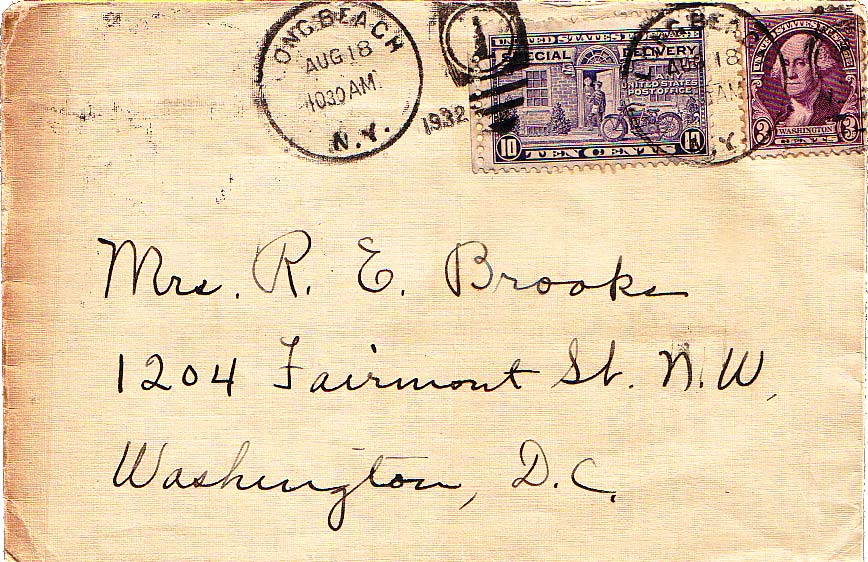 LONG BEACH
AUG 18
1030 AM
N.Y.
1932
1
UNITED STATES POSTAGE
SPECIAL DELIVERY
UNITED STATES
POST OFFICE
10 TEN CENTS 10
LONG BEACH
AUG 18
AM
N.Y.
UNITED STATES POSTAGE
WASHINGTON
3 CENTS 3
Mrs. R. E. Brooks
1204 Fairmont St. N.W,
Washington, D.C.